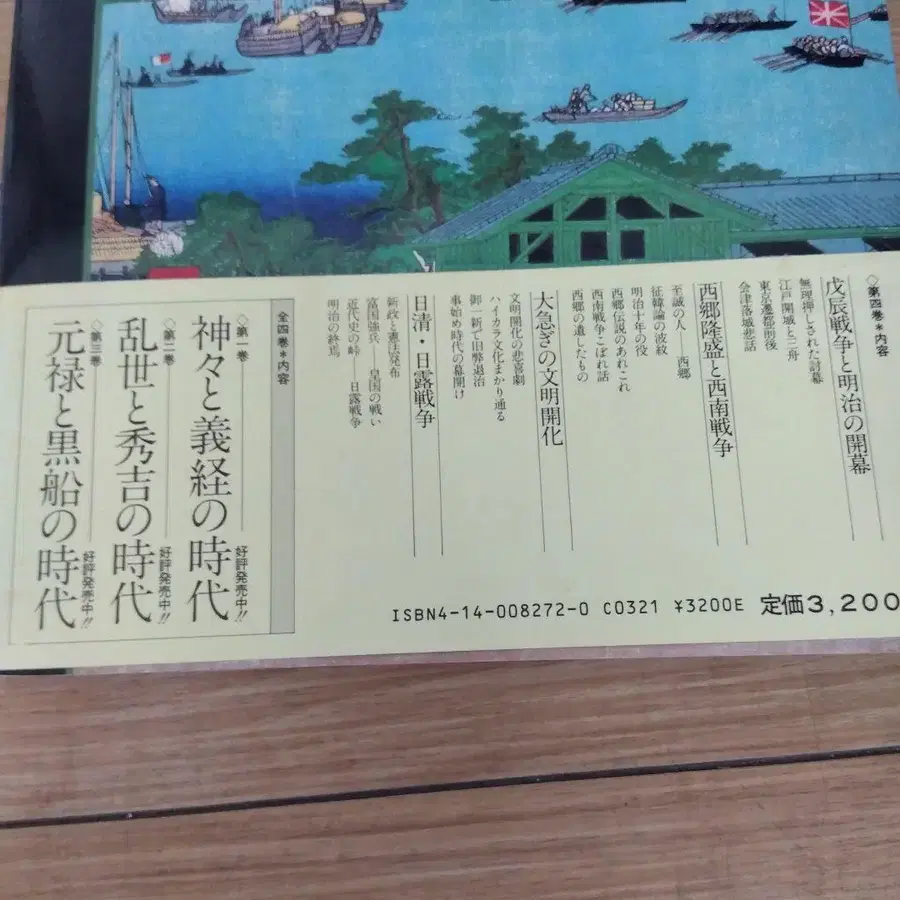 ◇第四巻*内容
戊辰戦争と明治の開幕
無理押しされた討幕
江戸開城と三舟
東京遷都前後
会津落城悲話
西郷隆盛と西南戦争
至誠の人——西郷
征韓論の波紋
明治十年の役
西郷伝説のあれこれ
西南戦争こぼれ話
西郷の遺したもの
大急ぎの文明開化
文明開化の悲喜劇
ハイカラ文化まかり通る
御一新で旧弊退治
事始め時代の幕開け
日清・日露戦争
新政と憲法発布
富国強兵 皇国の戦い
近代史の峠 日露戦争
明治の終焉
全四巻*内容
◇第一巻
神々と義経の時代
好評発売中!!
◇第二巻
乱世と秀吉の時代
好評発売中!!
◇第三巻
元禄と黒船の時代
好評発売中!!
ISBN4-14-008272-0 C0321 ¥3200E 定価3,200